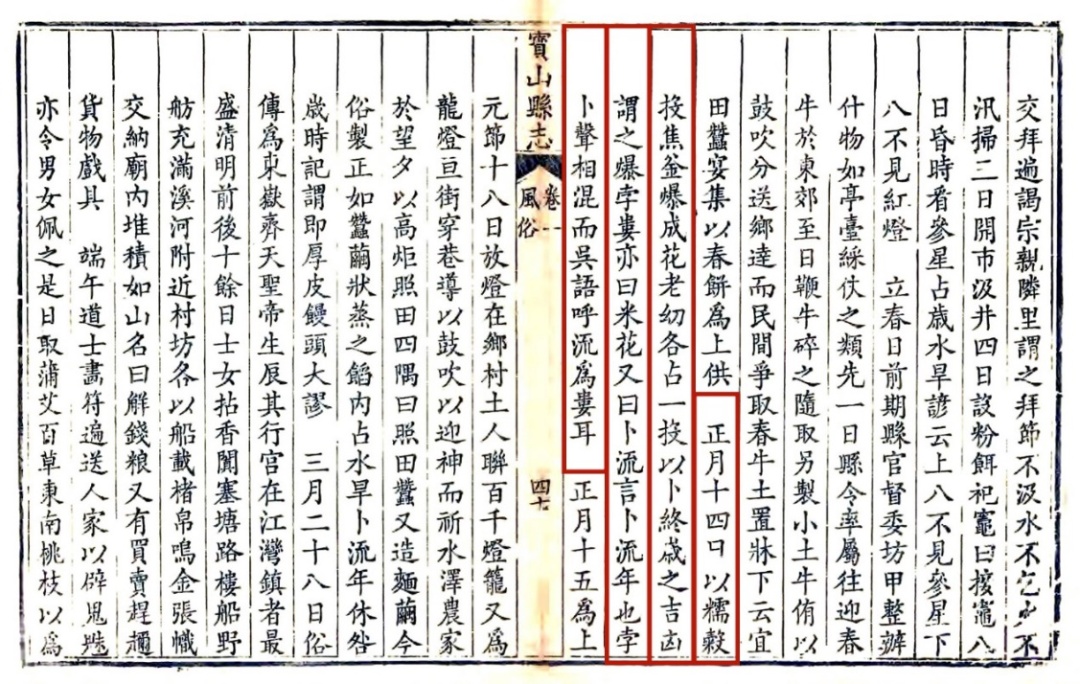 交拜遍謁宗親隣里謂之拜節不汲水不乞火不
汛掃二日開市汲井四日設粉餌祀竈曰接竈八
日昏時看參星占歲水旱諺云上八不見參星下
八不見紅燈　立春日前期縣官督委坊甲整辦
什物如亭臺綵仗之類先一日縣令率屬往迎春
牛於東郊至日鞭牛碎之隨取另製小土牛侑以
鼓吹分送鄉達而民間爭取春牛土置牀下云宜
田蠶宴集以春餅爲上供　正月十四日以糯穀
投焦釜爆成花老幼各占一投以卜終歲之吉凶
謂之爆孛婁亦曰米花又曰卜流言卜流年也孛
卜聲相混而吳語呼流爲婁耳　正月十五爲上
寶山縣志
卷一
風俗
四七
元節十八日放燈在鄉村土人聯百千燈籠又爲
龍燈亘街穿巷導以鼓吹以迎神而祈水澤農家
於望夕以高炬照田四隅曰照田蠶又造麵繭今
俗製正如蠶繭狀蒸之餡内占水旱卜流年休咎
歲時記謂即厚皮饅頭大謬　三月二十八日俗
傳爲東嶽齊天聖帝生辰其行宮在江灣鎮者最
盛清明前後十餘日士女拈香闐塞塘路樓船野
舫充滿溪河附近村坊各以船載楮帛鳴金張幟
交納廟内堆積如山名曰解錢粮又有買賣趕趂
貨物戲具　端午道士畫符遍送人家以辟鬼魅
亦令男女佩之是日取蒲艾百草東南桃枝以爲